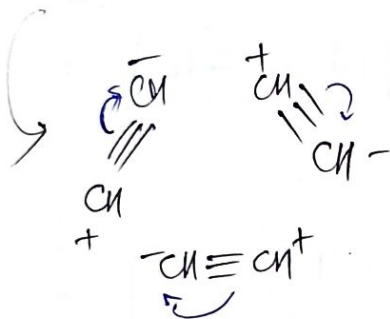 CH⁻
⁺CH
CH⁻
CH
+
⁻CH≡CH⁺